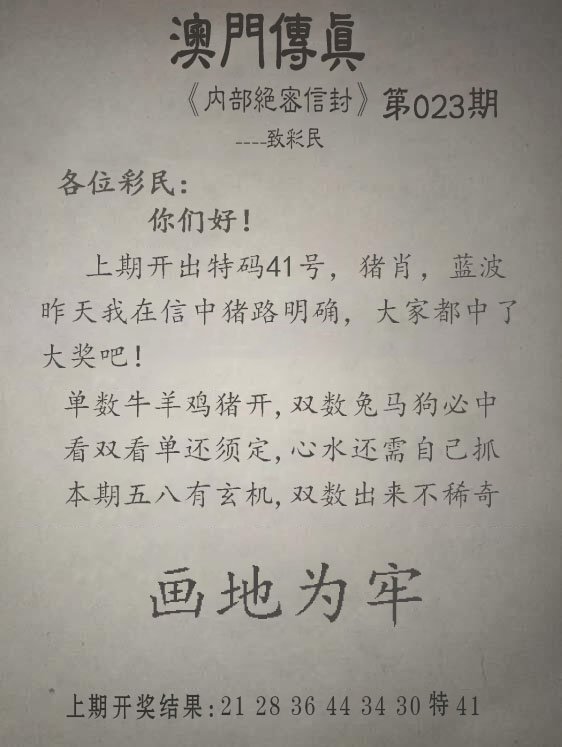 澳門傳眞
《内部絕密信封》第023期
----致彩民
各位彩民:
你们好!
上期开出特码41号，猪肖，蓝波
昨天我在信中猪路明确，大家都中了
大奖吧!
单数牛羊鸡猪开,双数兔马狗必中
看双看单还须定,心水还需自己抓
本期五八有玄机,双数出来不稀奇
画地为牢
上期开奖结果:21 28 36 44 34 30 特 41